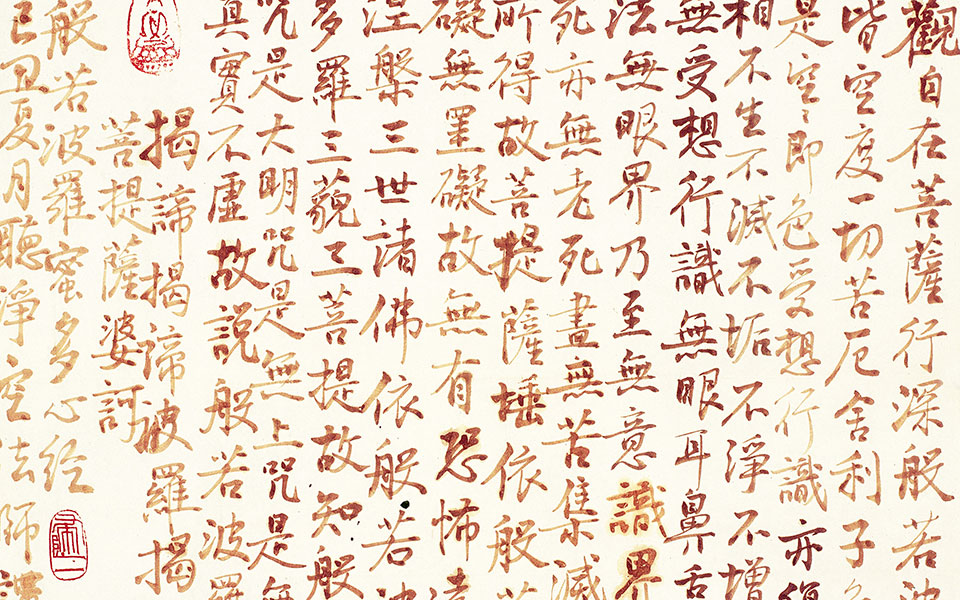 觀自在菩薩行深般若波
皆空度一切苦厄舍利子色
是空〻即色受想行識亦復
相不生不滅不垢不淨不增
無受想行識無眼耳鼻舌
法無眼界乃至無意識界
死亦無老死盡無苦集滅
所得故菩提薩埵依般若
礙無罣礙故無有恐怖遠
涅槃三世諸佛依般若波
多羅三藐三菩提故知般
咒是大明咒是無上咒是無
真實不虛故說般若波羅
揭諦揭諦波羅揭
菩提薩婆訶
般若波羅蜜多心经
己丑夏月聽淨空法師講